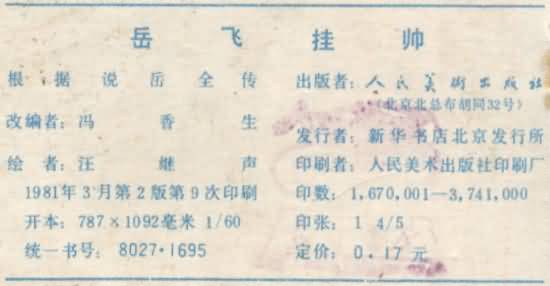 岳飞挂帅
根据说岳全传
改编者：冯香生
绘者：汪继声
1981年3月第2版第9次印刷
开本：787×1092毫米 1/60
统一书号：8027·1695
出版者：人民美術出版社
（北京北总布胡同32号）
发行者：新华书店北京发行所
印刷者：人民美术出版社印刷厂
印数：1,670,001—3,741,000
印张：1 4/5
定价：0.17元